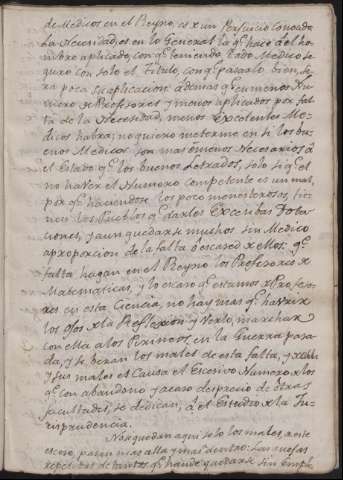 de Medicos en el Reyno, es x un Perjuicio conocido
La Necesidad, es en lo General la qe. hace àl ho-
mbre aplicado, con qe. teniendo todo Medico se-
guro con solo el Titulo, con qe. pasarlo bien, se-
ra poca su aplicacion: àdemas qe. en menos Nu-
mero x Profesores y menos aplicados por fal-
ta de la Necesidad, menos Excelentes Me-
dicos habra; no quiero meterme en si los bu-
enos Medicos son mas ò menos Necesarios à
el Estado qe. los buenos Letrados, solo si qe. el
no haver el Numero competente es un mal,
por qe. haciendose los pocos menesterosos, tie-
nen los Pueblos qe. darles Excesibas Dota-
ciones, y aun quedarse muchos sin Medico
a proporcion de la falta ò escasez x ellos: qe.
falta hagan en el Reyno los Profesores x
Matematicas, y lo escaso qe. estamos x Profeso-
res en esta Ciencia, no hay mas qe. habrir
los ojos x la Reflexion y Verlo, marchar
con ella à los Perineos en la Guerra pasa-
da, y se veran los males de esta falta,
y sus males el Causa el Excesivo Numero x los
qe. con abandono y acaso desprecio de otras
facultades, se dedican, à el Estudio x la Ju-
risprudencia.
No se quedan aqui solo los males, ante
esceso, pasan mas alla y mas dentro: Las quejas
repetidas de tantos qe. han de quedarse sin emple